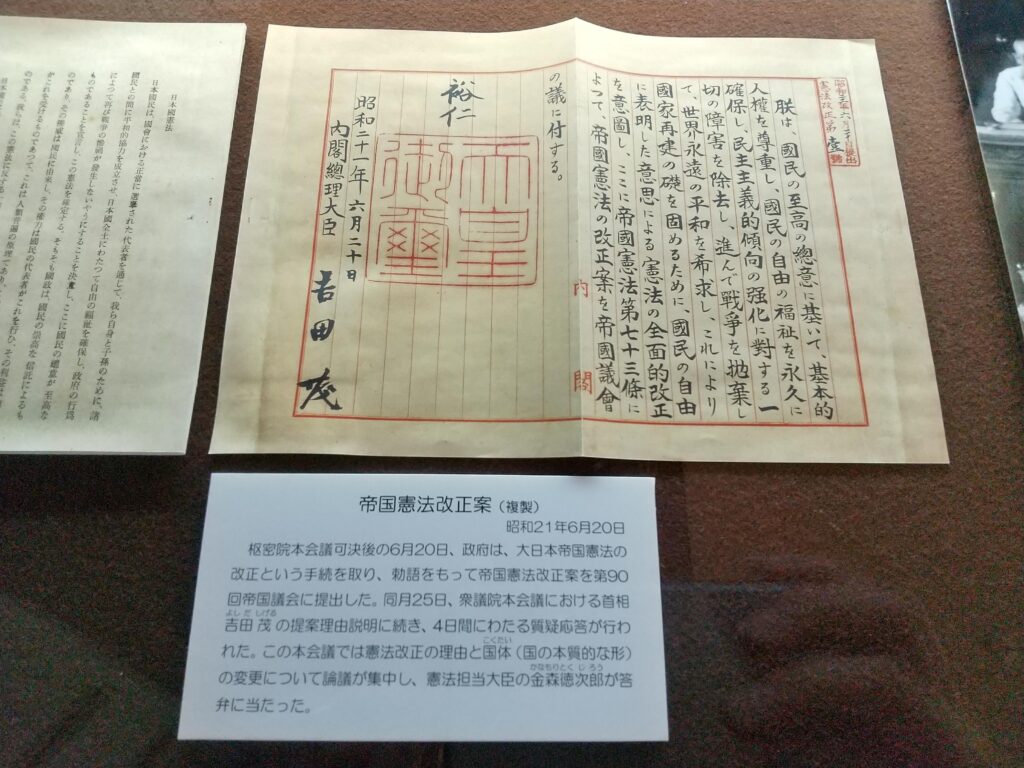 憲法改正第壹號
朕は、國民の至高の總意に基いて、基本的
人權を尊重し、國民の自由の福祉を永久に
確保し、民主主義的傾向の强化に對する一
切の障害を除去し、進んで戰爭を抛棄し
て、世界永遠の平和を希求し、これにより
國家再建の礎を固めるために、國民の自由
に表明した意思による憲法の全面的改正
を意圖し、ここに帝國憲法第七十三條に
よつて、帝國憲法の改正案を帝國議會
の議に付する。
裕仁
天皇
御璽
昭和二十一年六月二十日
内閣總理大臣 吉田茂
内閣
日本國憲法
日本國民は、國會における正當に選擧された代表者を通じて、我ら自身と子孫のために、諸
國民との間に平和的協力を成立させ、日本國全土にわたつて自由の福祉を確保し、政府の行爲
によつて再び戰爭の慘禍が發生しないやうにすることを決意し、ここに國民の總意が至高な
ものであることを宣言し、この憲法を確定する。そもそも國政は、國民の崇高な信託によるも
のであり、その權威は國民に由來し、その權力は國民の代表者がこれを行ひ、その利益は
がこれを受けるものであつて、これは人類普遍の原理であり、
のである。我らは、この憲法に反する
帝国憲法改正案(複製)
昭和21年6月20日
枢密院本会議可決後の6月20日、政府は、大日本帝国憲法の
改正という手続を取り、勅語をもって帝国憲法改正案を第90
回帝国議会に提出した。同月25日、衆議院本会議における首相
吉田茂の提案理由説明に続き、4日間にわたる質疑応答が行わ
れた。この本会議では憲法改正の理由と国体(国の本質的な形)
の変更について論議が集中し、憲法担当大臣の金森徳次郎が答
弁に当たった。